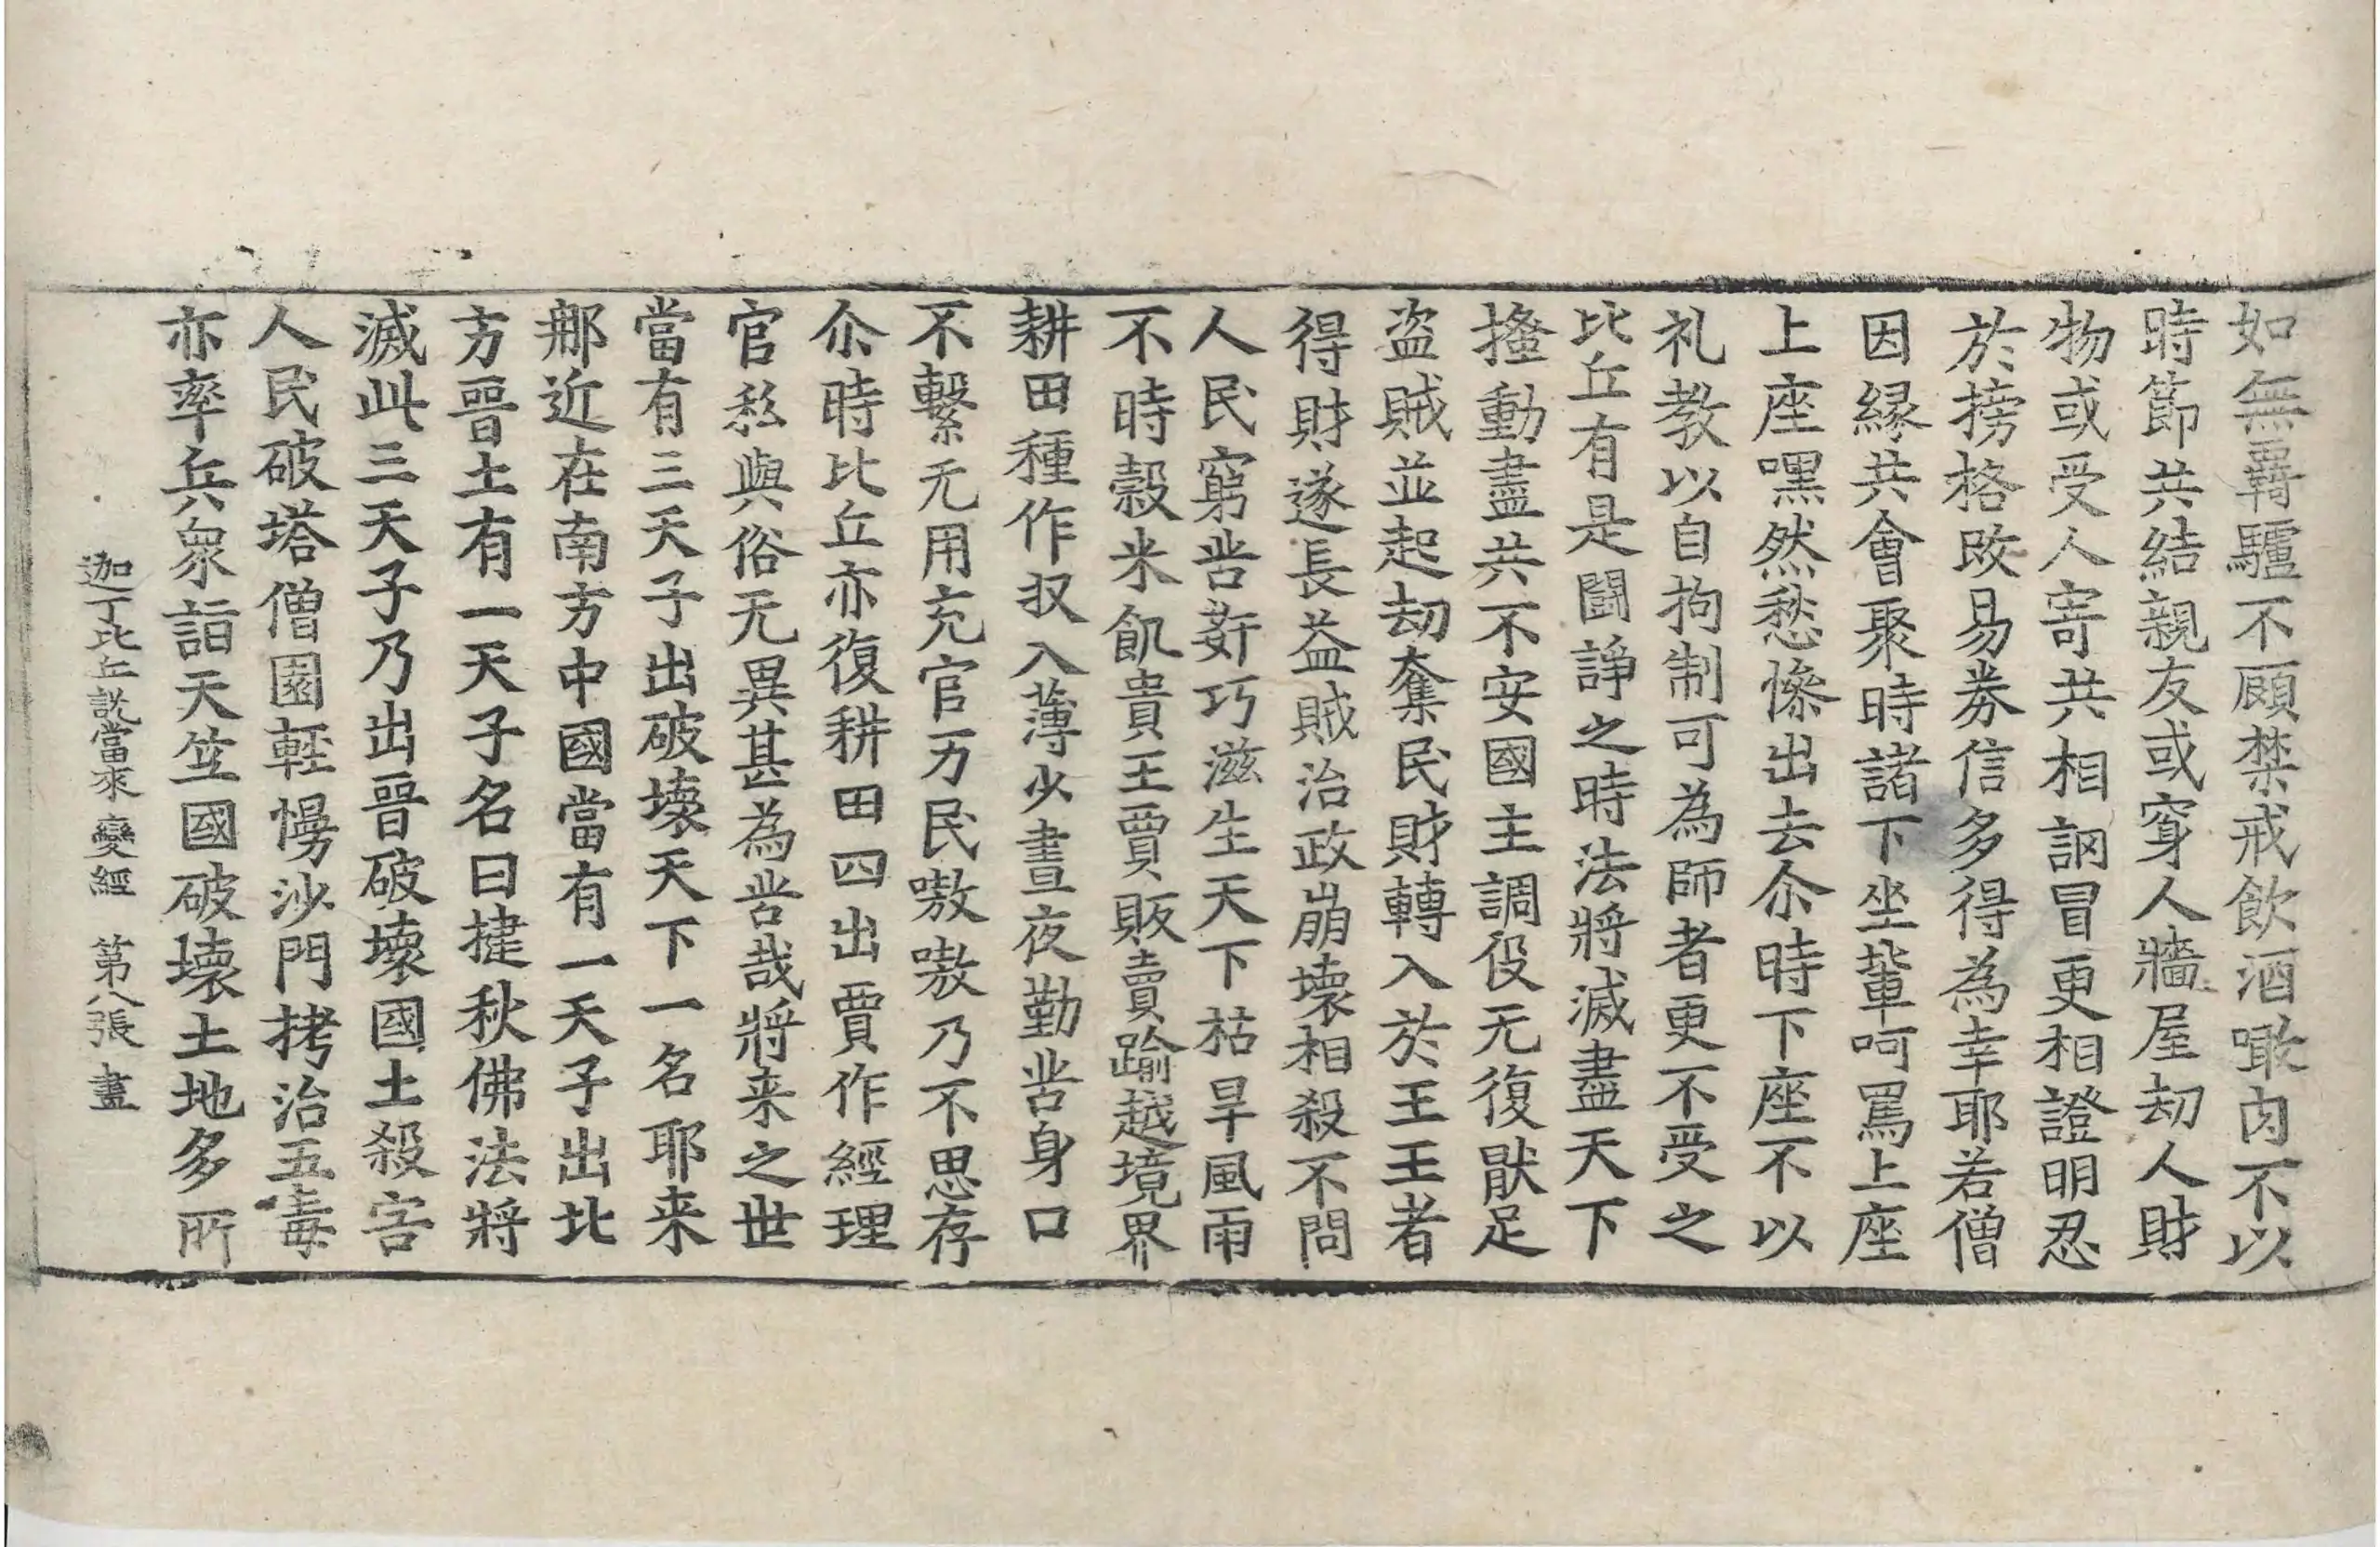 如無羇驢不顧禁戒飲酒噉肉不以
時節共結親友或穿人牆屋劫人財
物或受人寄共相誷冒更相證明忍
於搒格改易券信多得為幸耶若僧
因縁共會聚時諸下坐輩呵罵上座
上座嘿然愁慘出去尒時下座不以
礼教以自拘制可為師者更不受之
比丘有是鬪諍之時法將滅盡天下
搔動盡共不安國主調役无復猒足
盜賊並起劫奪民財轉入於王王者
得財遂長益賊治政崩壞相殺不問
人民窮苦姧巧滋生天下枯旱風雨
不時穀米飢貴王賈販賣踰越境界
耕田種作収入薄少晝夜勤苦身口
不繫无用充官万民嗷嗷乃不思存
尒時比丘亦復耕田四出賈作經理
官私與俗无異甚為苦哉將来之世
當有三天子出破壞天下一名耶来
鄅近在南方中國當有一天子出北
方晉土有一天子名曰揵秋佛法將
滅此三天子乃出晉破壞國土殺害
人民破塔僧園輕慢沙門拷治五毒
亦率兵衆詣天竺國破壞土地多所
迦丁比丘說當來變經 第八張 畫